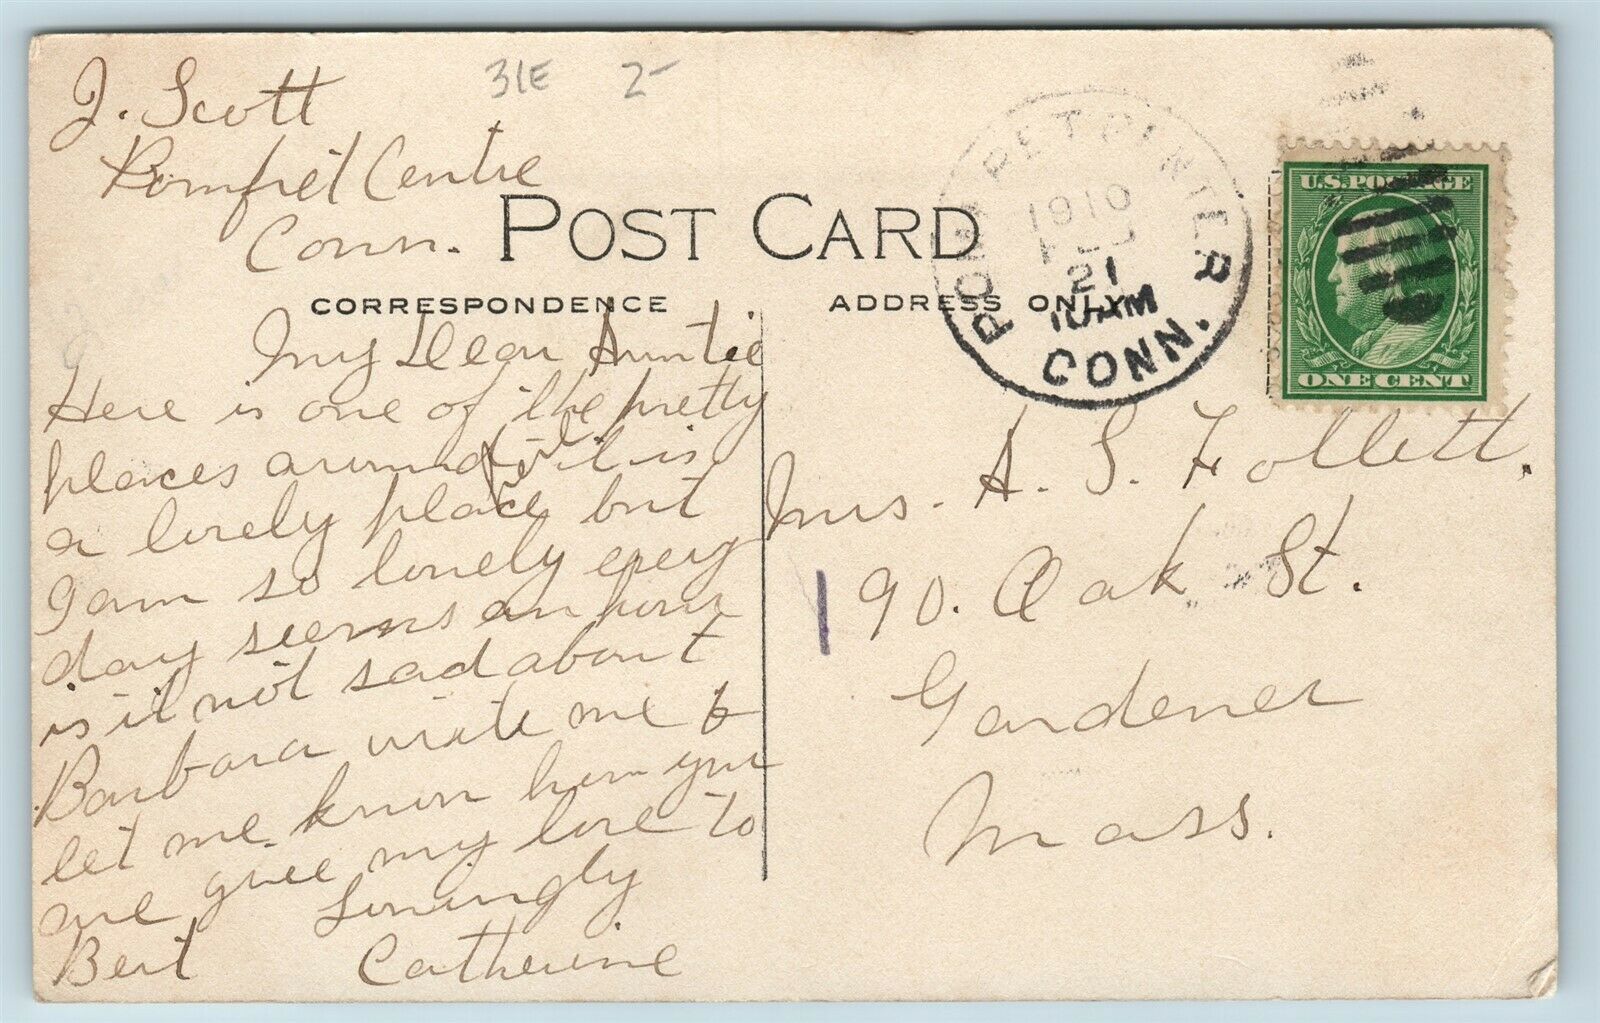 J. Scott
Pomfret Centre
Conn.
31E 2-
POST CARD
CORRESPONDENCE
ADDRESS ONLY
POMFRET CENTER
1910
21
10 AM
CONN.
U.S. POSTAGE
ONE CENT
My Dear Auntie
Here is one of the pretty
places around here it is
a lovely place but
I am so lonely every
day seems an hour
is it not sad about
Barbara write me &
let me know how you
are give my love to
Bert Lovingly
Catherine
Mrs. A. S. Follett.
190. Oak St.
Gardener
Mass.